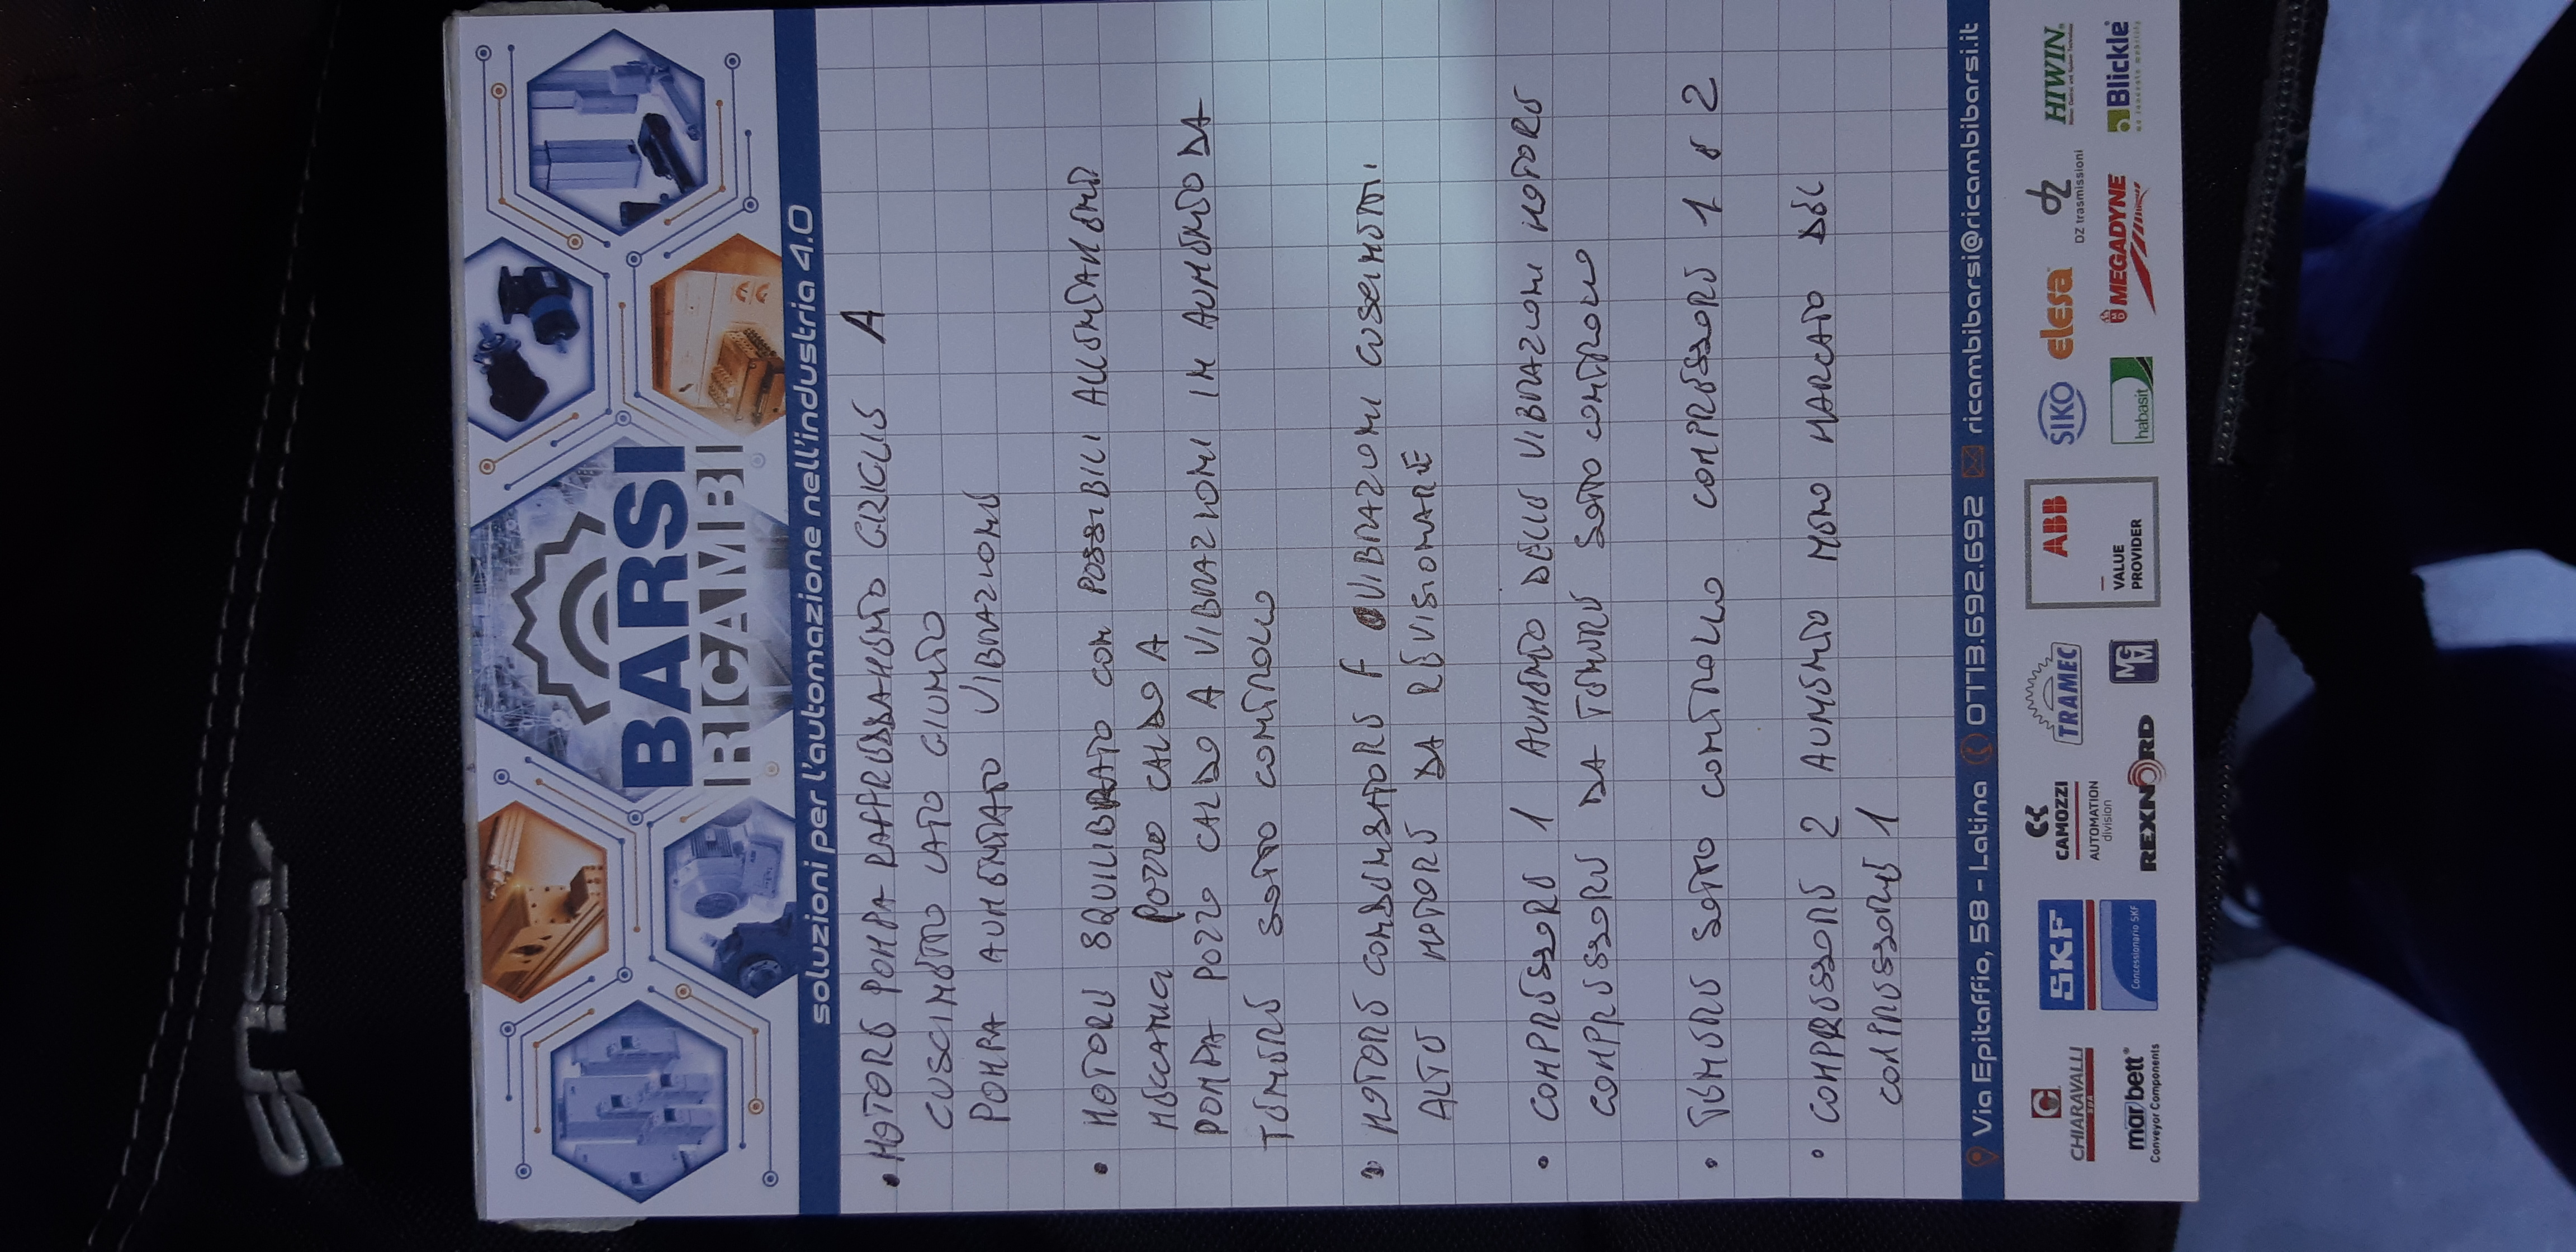 BARSI
RICAMBI
soluzioni per l'automazione nell'industria 4.0
• MOTORE POMPA RAFFREDDAMENTO GRIGLIE A
CUSCINETTO LATO GIUNTO
POMPA AUMENTATO VIBRAZIONE
• MOTORE SQUILIBRATO CON POSSIBILI ALLENTAMENTI
MECCANICI POZZO CALDO A
POMPA POZZO CALDO A VIBRAZIONI IN AUMENTO DA
TENERE SOTTO CONTROLLO
• MOTORE CONDENSATORE F VIBRAZIONI CUSCINETTI
ALTE MOTORE DA REVISIONARE
• COMPRESSORE 1 AUMENTO DELLE VIBRAZIONI MOTORE
COMPRESSORE DA TENERE SOTTO CONTROLLO
• TENERE SOTTO CONTROLLO COMPRESSORE 1 E 2
• COMPRESSORE 2 AUMENTO MENO MARCATO DEL
COMPRESSORE 1
Via Epitaffio, 58 - Latina 0773.692.692 ricambibarsi@ricambibarsi.it
CHIARAVALLI SPA SKF CAMOZZI AUTOMATION division TRAMEC ABB VALUE PROVIDER SIKO elesa DZ trasmissioni HIWIN
marbett Conveyor Components Concessionario SKF REXNORD MGM habasit MEGADYNE Blickle